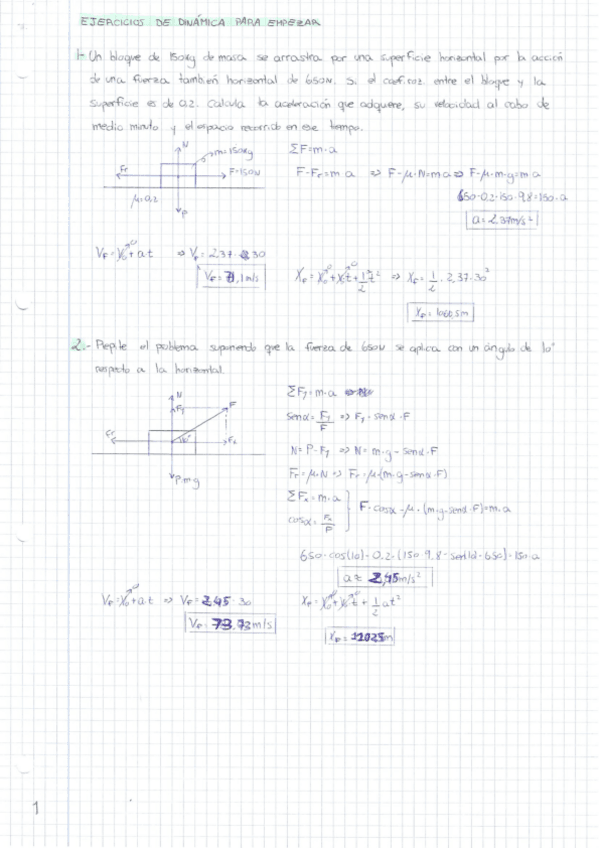 EJERCICIOS DE DINÁMICA PARA EMPEZAR
1- Un bloque de 150kg de masa se arrastra por una superficie horizontal por la acción
de una fuerza también horizontal de 650N. Si el coef. roz. entre el bloque y la
superficie es de 0.2. Calcula la aceleración que adquiere, su velocidad al cabo de
medio minuto y el espacio recorrido en ese tiempo.
N
m=150Kg
Fr
F=150N
μ=0,2
P
ΣF=m·a
F-Fr=m·a => F-μ·N=m·a => F-μ·m·g=m·a
650-0.2·150·9.8=150·a
a=2.37m/s²
Vf=V0+a·t => Vf=2.37·30
Vf=71,1m/s
Xf=X0+V0t+1/2t² => Xf=1/2·2,37·30²
Xf=1066,5m
2.- Repite el problema suponiendo que la fuerza de 650N se aplica con un ángulo de 10°
respecto a la horizontal.
N
Fy
F
Fr
10°
Fx
P=m·g
ΣFy=m·a
senα=Fy/F => Fy=senα·F
N=P-Fy => N=m·g-senα·F
Fr=μ·N => Fr=μ·(m·g-senα·F)
ΣFx=m·a
cosα=Fx/F
F·cosα-μ·(m·g-senα·F)=m·a
650·cos(10)-0.2·(150·9.8-sen10·650)=150·a
a≈2,45m/s²
Vf=V0+a·t => Vf=2,45·30
Vf=73.73m/s
Xf=X0+V0t+1/2at²
Xf=11025m
1